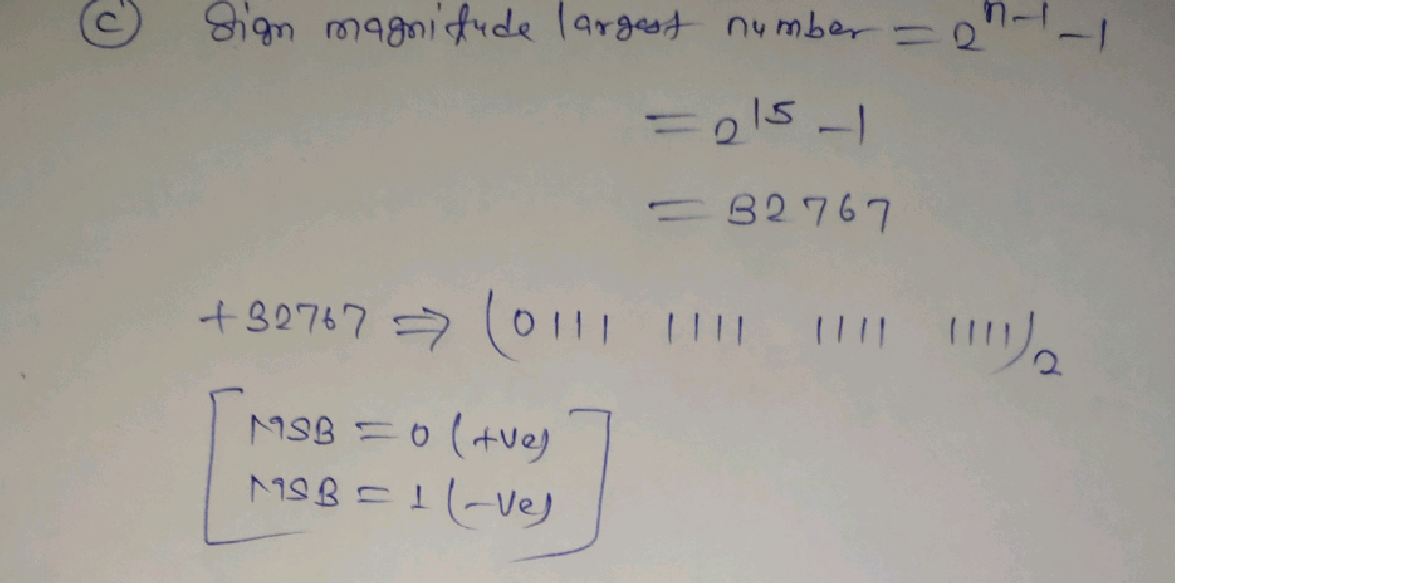 (c) Sign magnitude largest number = 2^{n-1} - 1
= 2^{15} - 1
= 32767
+32767 ⇒ (0111 1111 1111 1111)₂
MSB = 0 (+ve)
MSB = 1 (-ve)